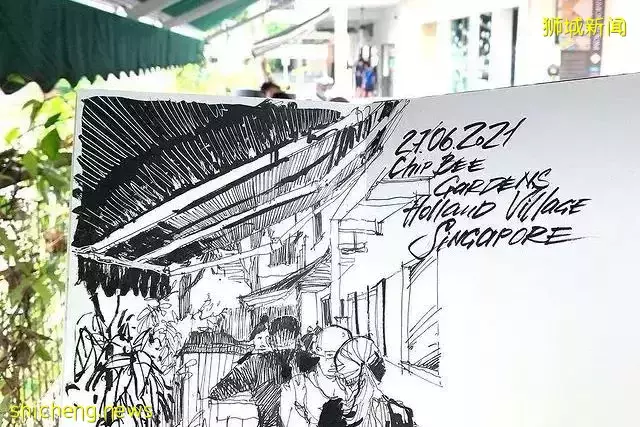 狮城新闻
27.06.2021
Chip Bee
Gardens
Holland Village
Singapore
shicheng.news